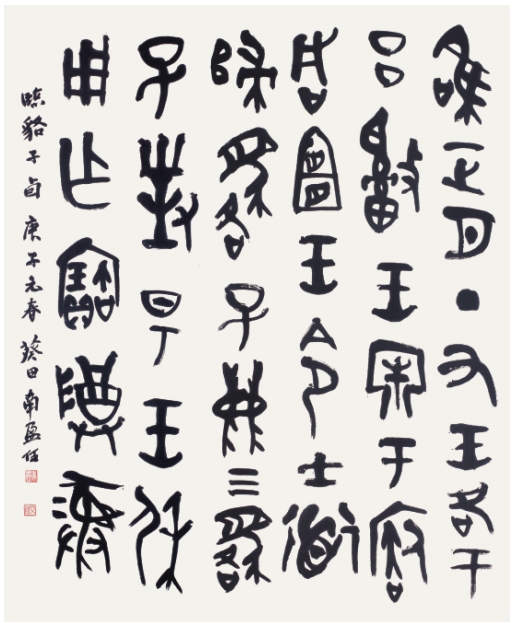 唯正月丁丑王各于
呂𢾭王牢于㡴
咸宜王令士道
歸貉子鹿三貉
子對昜王休
用乍寶尊彝
臨貉子卣庚子元春葵田南